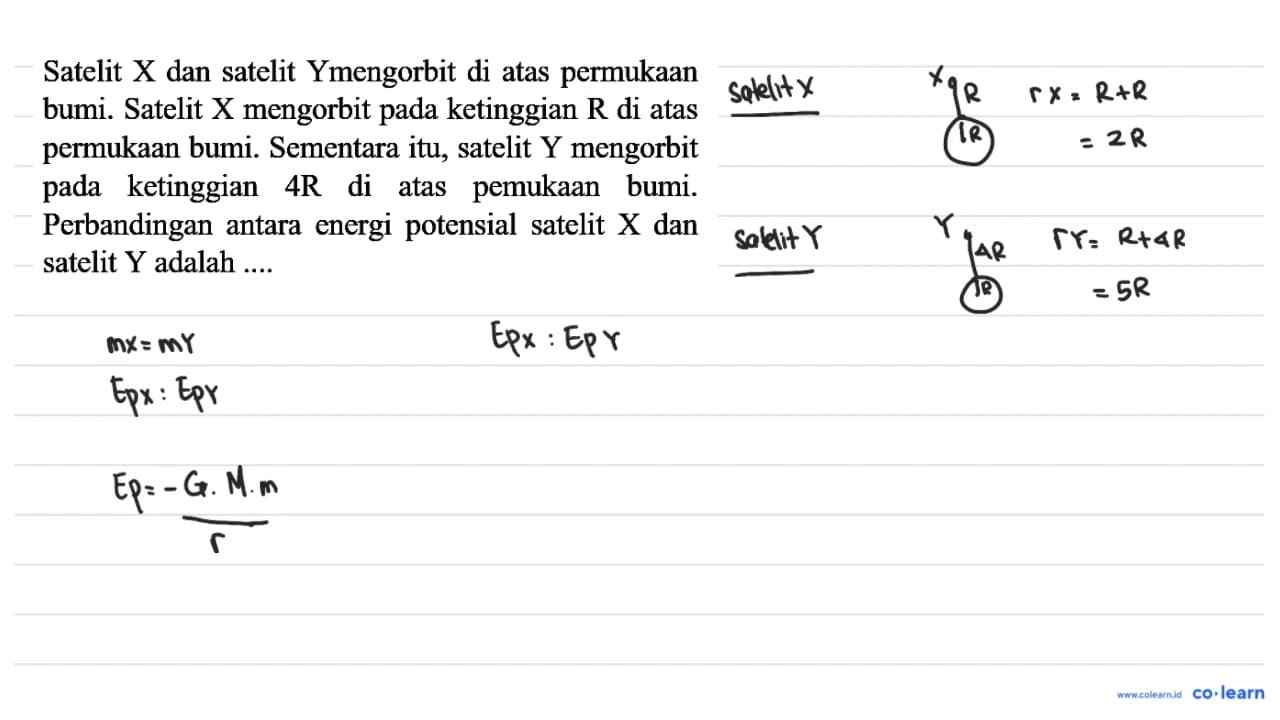 Satelit X dan satelit Ymengorbit di atas permukaan
bumi. Satelit X mengorbit pada ketinggian R di atas
permukaan bumi. Sementara itu, satelit Y mengorbit
pada ketinggian 4R di atas pemukaan bumi.
Perbandingan antara energi potensial satelit X dan
satelit Y adalah ....
satelit X
X R
R
rx = R+R
= 2R
satelit Y
Y 4R
R
rY = R+4R
= 5R
mx = mY
Epx : EpY
Epx : EpY
Ep = - G. M. m
r
www.colearn.id co·learn